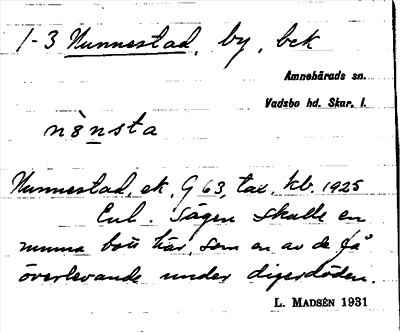 1-3 Nunnestad, by, bck
Amnehärads sn.
Vadsbo hd. Skar. l.
nènsta
Nunnestad, ek. G 63, tax, kb. 1925
Enl. Sägen skulle en
nunna bott här, som en av de få
överlevande under digerdöden.
L. MADSÉN 1931